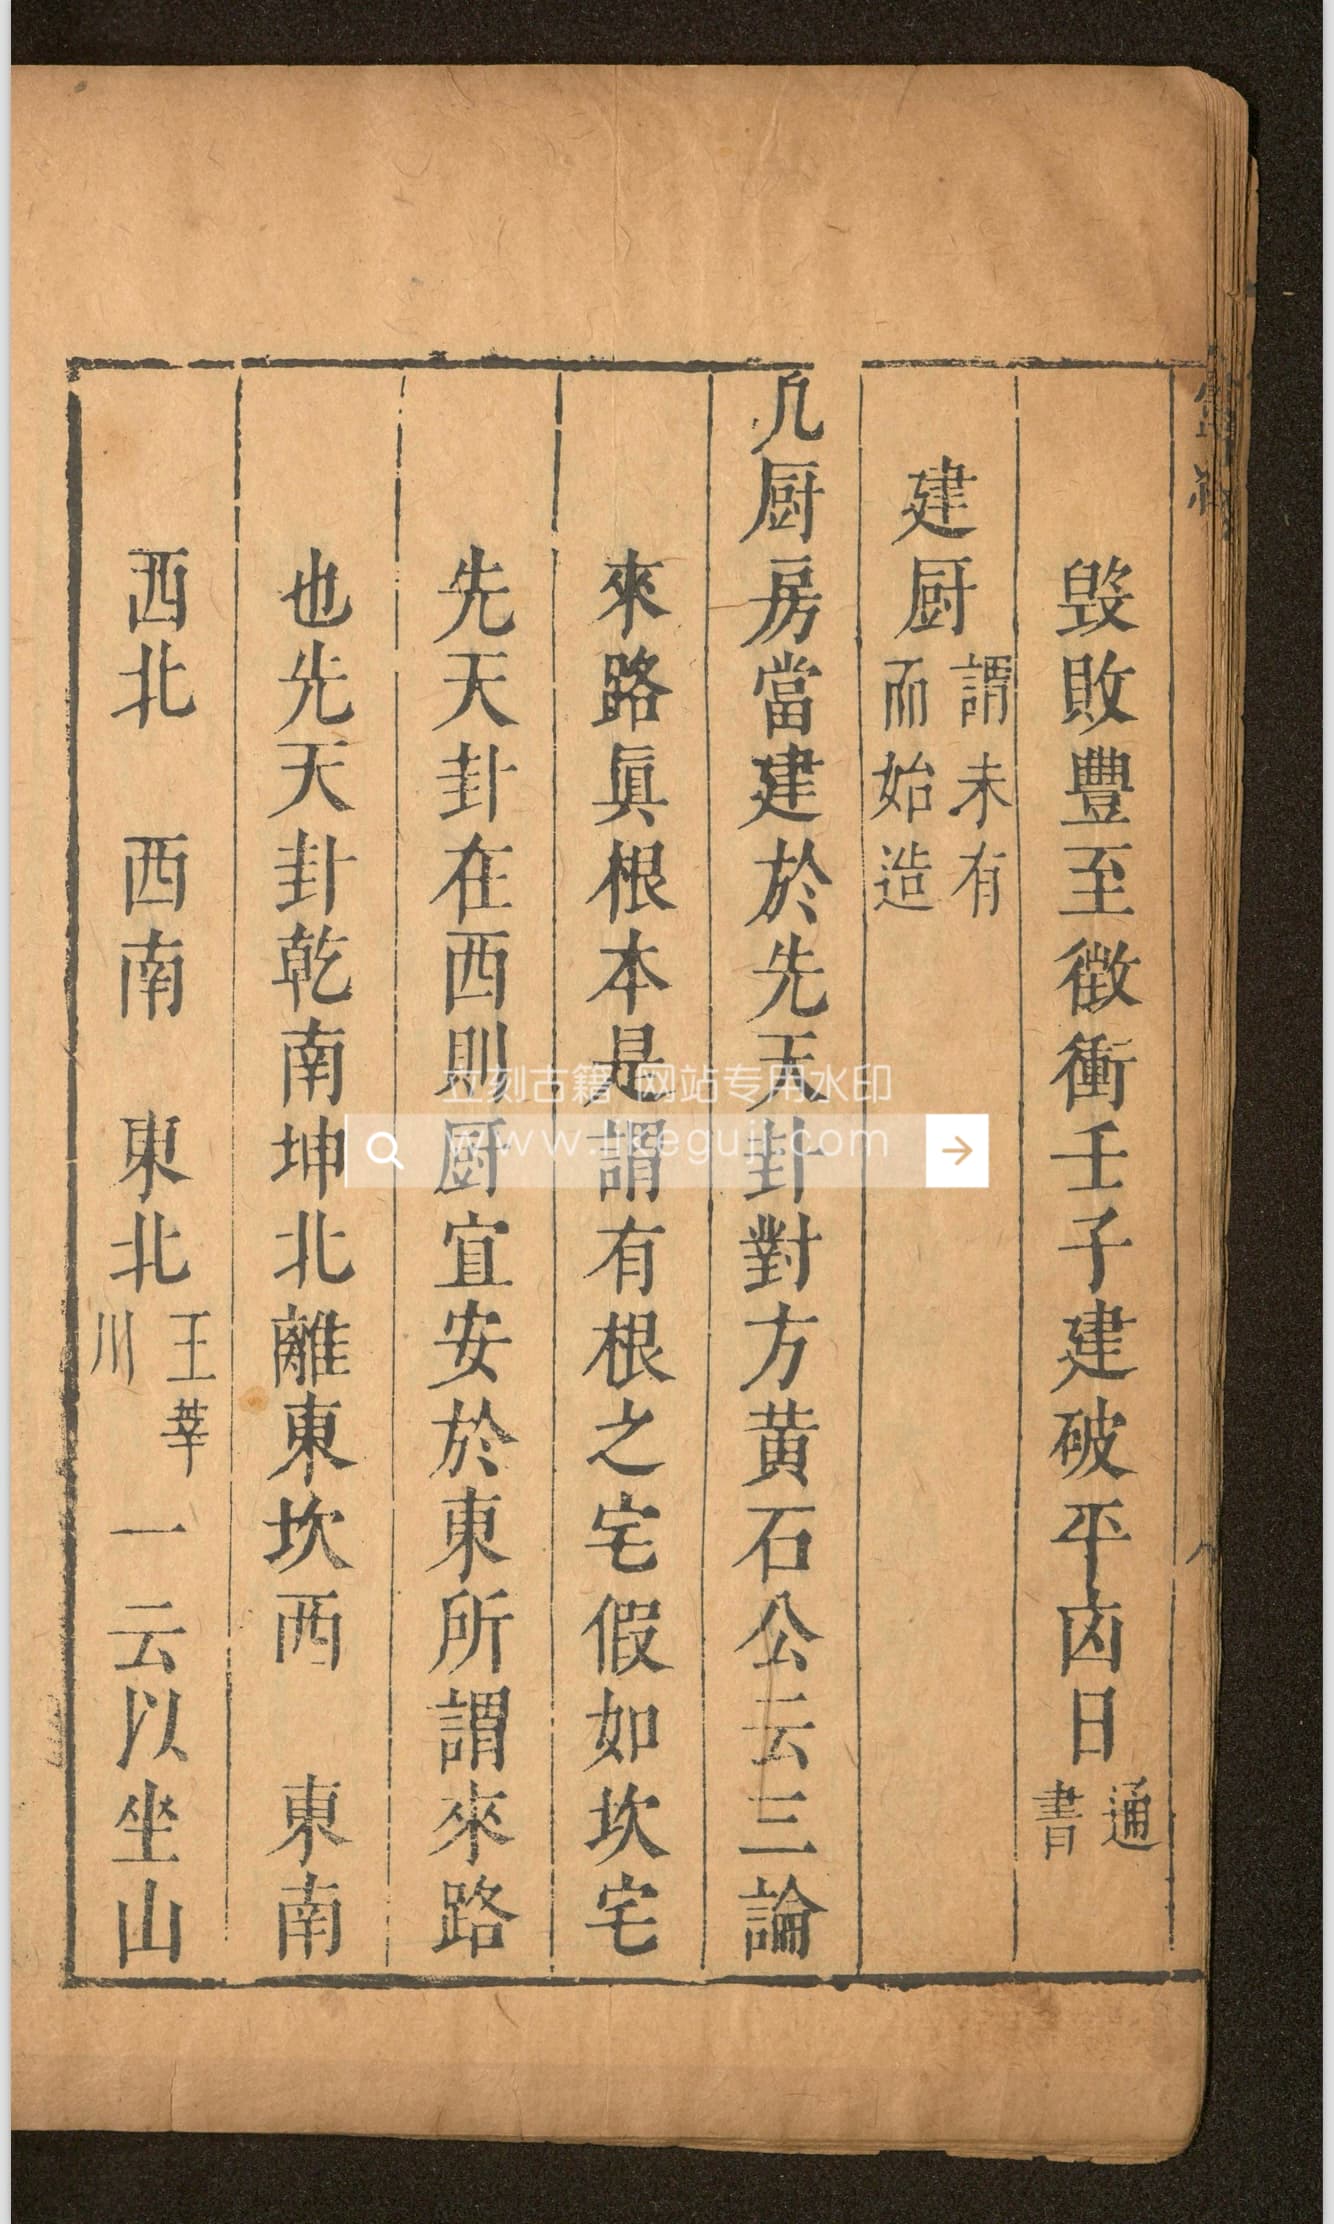 毀敗豐至徵衝壬子建破平卤日通書
建厨謂未有而始造
凢厨房當建於先天卦對方黃石公云三論
來路眞根本是謂有根之宅假如坎宅
先天卦在西則厨宜安於東所謂來路
也先天卦乾南坤北離東坎西 東南
西北 西南 東北王莘川一云以坐山
立刻古籍 网站专用水印
www.likeguji.com